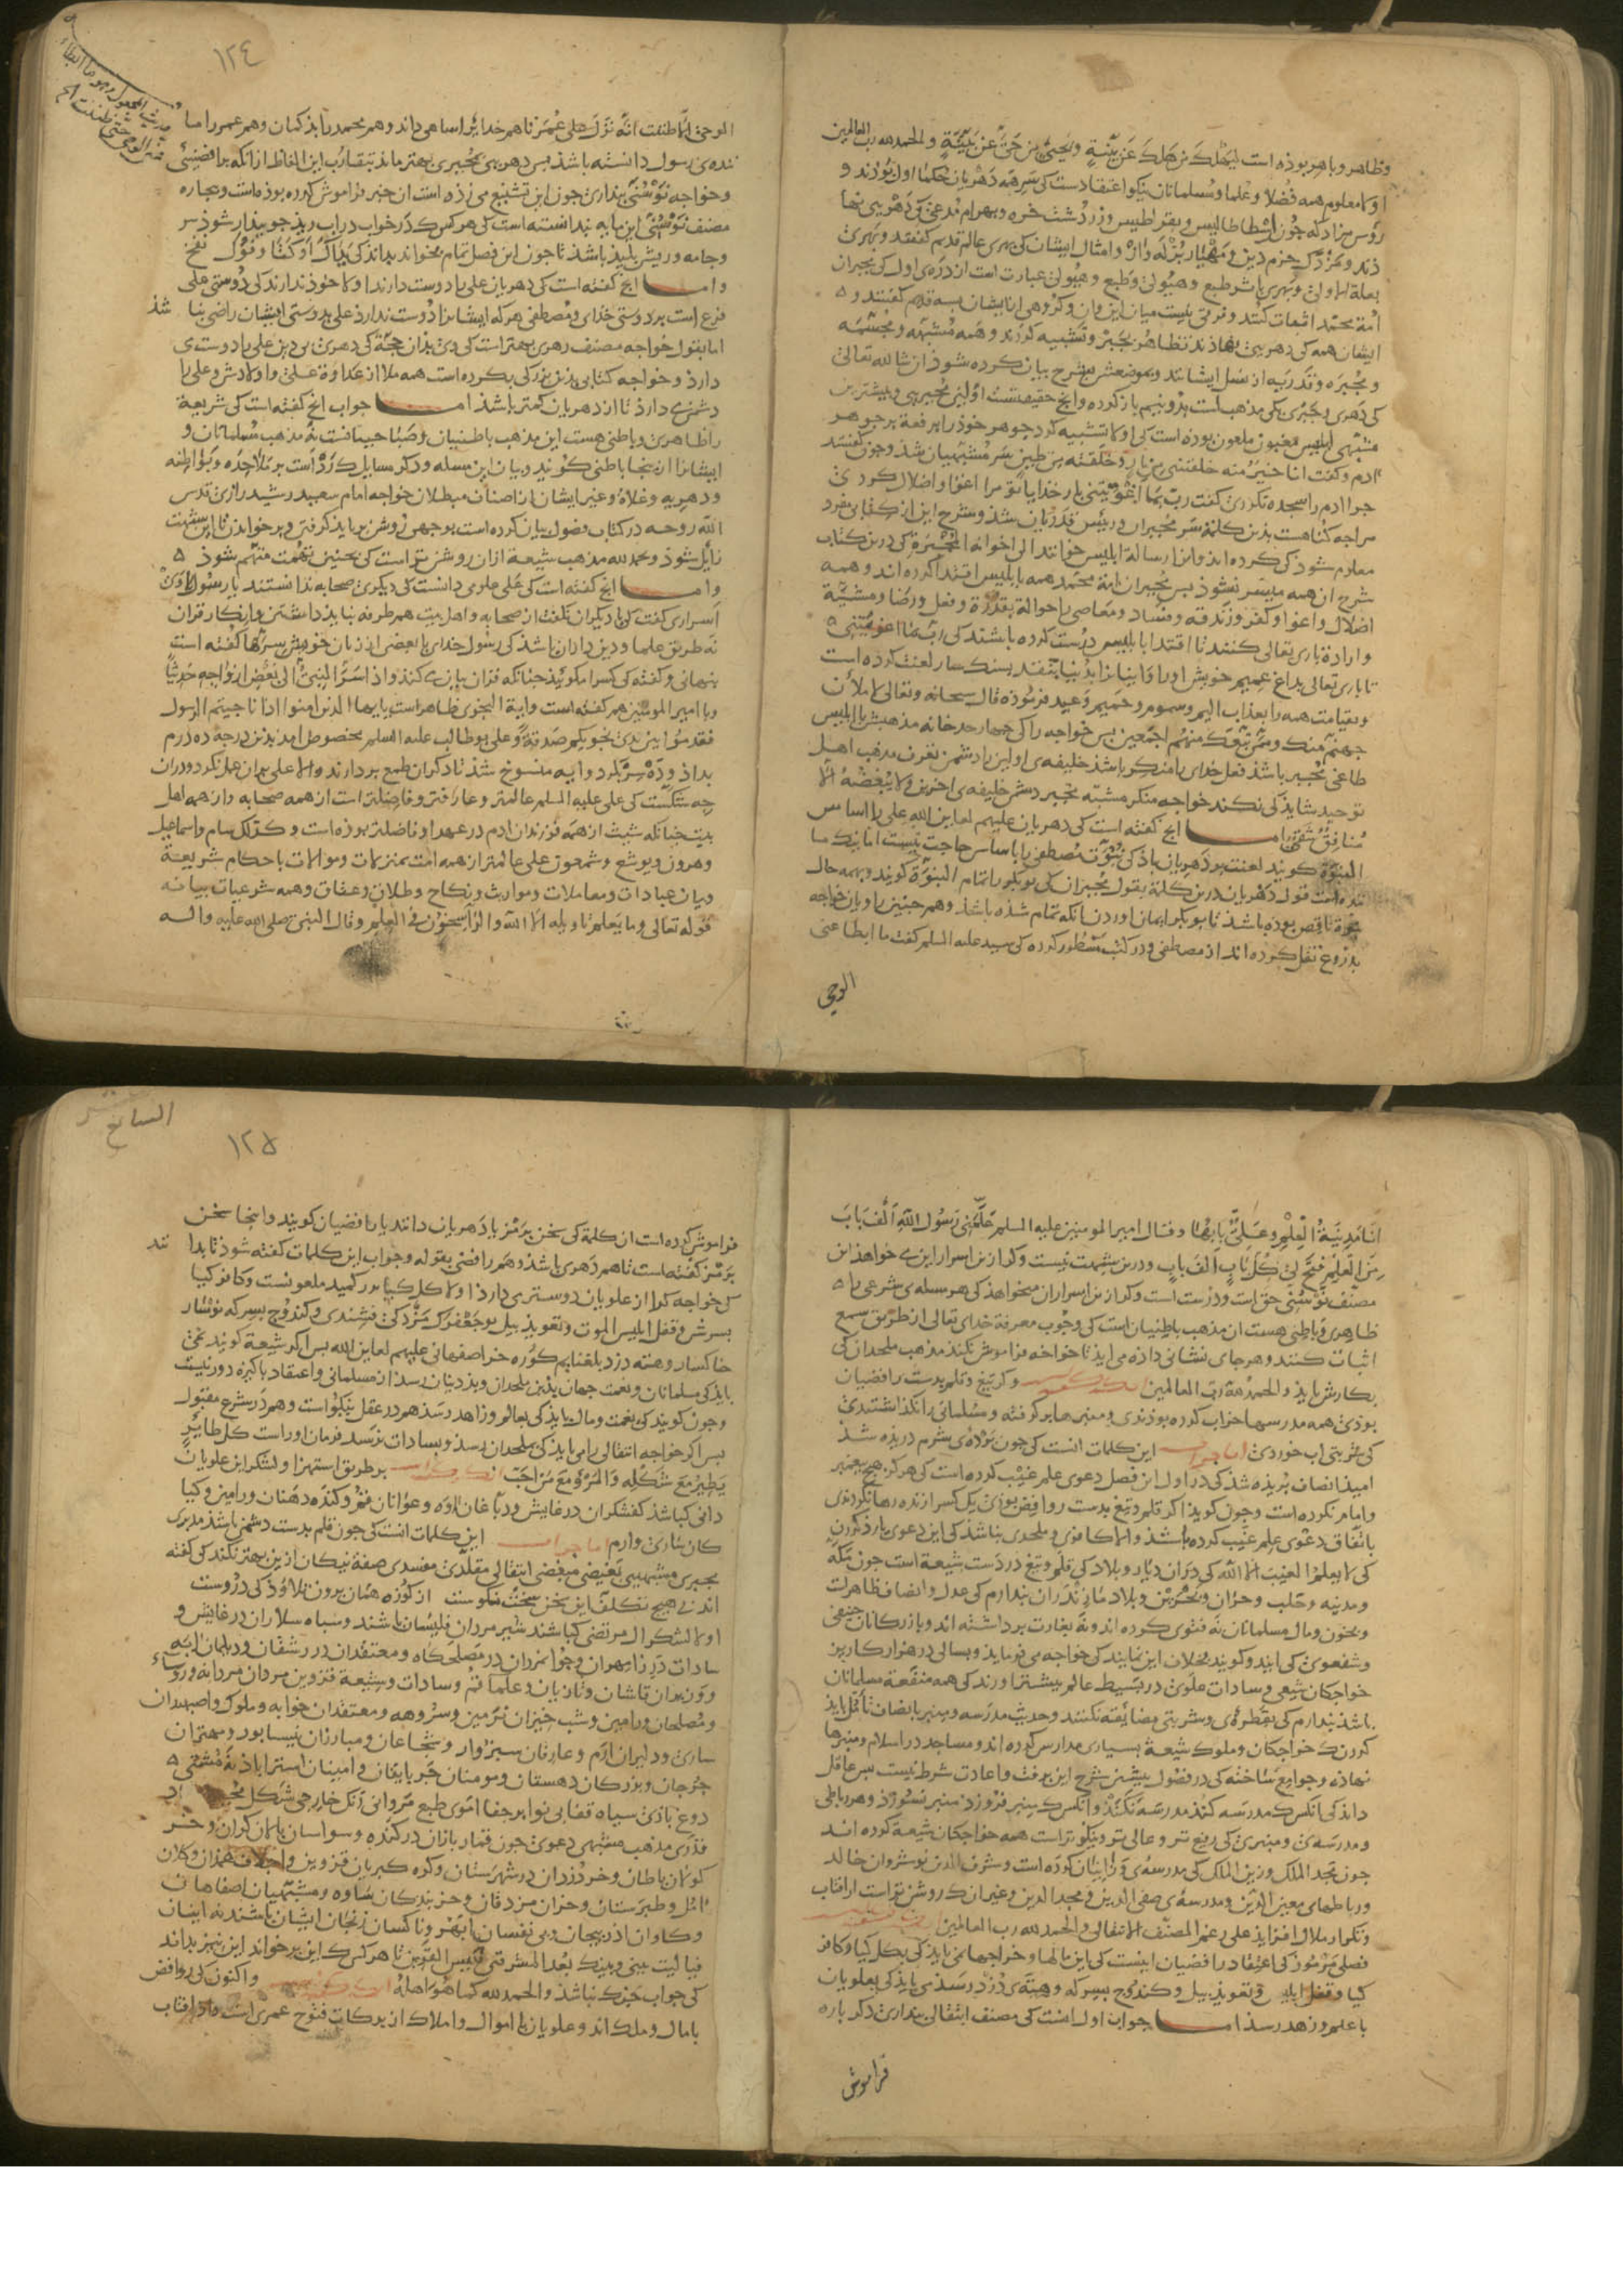 وظاهر وباهر بوذه است لیهلک من هلک عن بینة ویحیی من حی عن بینة والحمد لله رب العالمین
او کا معلوم همه فضلا وعلما ومسلمانان نیکو اعتقادست کی سر همه دهریان حکما اول بوذند و
رؤس مزادکه چون ارسطاطالیس وبقراطیس وزردشت خره وبهرام مدعی و دهریی نها
ذند ومزدک خرم دین و مهیار بزله زاز وامثال ایشان کی بهری عالم قدیم گفتند وبهری
بعلة الاولی وبهری باشر طبع وهیولی وطبع وهیولی عبارت است از دره‌ی اول کی مجبران
امة محمد اثبات کنند وفرقی نیست میان این وآن وکروهی از ایشان بسه قدیم گفتند و
ایشان همه کی دهریی نهاذند تظاهر بجبر وتشبیه کردند وهمه مشبهه ومجسمه
ومجبره وقدریه از نسل ایشانند وبموضعش بشرح بیان کرده شوذ ان شا الله تعالی
کی دهری وجبری یکی مذهب است بدو نیم باز کرده وانچ حقیقتست اولین مجبریی وپیشترین
مشبهی ابلیس مغبون ملعون بوذه است کی اولا تشبیه کرد جوهر خوذ را بر فعة بر جوهر
آدم وگفت انا خیر منه خلقتنی من نار وخلقته من طین سر مشبهیان شذ وچون گفتند
چرا آدم را سجده نکردی گفت رب بما اغویتنی بار خدایا تو مرا اغوا واضلال کردی
مرا چه گناهست بذین کلمة سر مجبران ورئیس قدریان شذ وشرح این از کتابی مفرد
معلوم شوذ کی کرده اند وانرا رسالة ابلیس خوانند الی اخوانه المجبرة کی درین کتاب
شرح آن همه میسر نشوذ پس مجبران امة محمد همه بابلیس اقتدا کرده اند وهمه
اضلال واغوا وکفر وزندقه وفساد ومعاصی را حوالة بقدرة وفعل ورضا ومشیة
وارادة باری تعالی کنند تا اقتدا بابلیس درست کرده باشند کی رب بما اغویتنی
تا باری تعالی بداغ عمیم خویش او را وایشانرا در دنیا بنقد بسنکسار لعنت کرده است
وبقیامت همه را بعذاب الیم وسموم وحمیم وعید فرموذه قال سبحانه وتعالی لاملأن
جهنم منک وممن تبعک منهم اجمعین پس خواجه را کی چهار حد خانه مذهبش با ابلیس
طاغی مجبر باشذ فعل خدای را منکر باشذ خلیفه‌ی اولین را دشمن تعرف مذهب اهل
توحید شایذ کی نکند خواجه منکر مشبه مجبر دشمن خلیفه‌ی آخرین ولا یبغضه الا
منافق شقی اما انچ گفته است کی دهریان علیهم لعاین الله علی را اساس
النبوة گویند لعنت بر دهریان باذ کی نبوت مصطفی را باساس حاجت نیست اما نیک ما
نده است قول دهریان درین کلمة بقول مجبران کی بوبکر را تمام النبوة گویند وبهمه حال
نبوة ناقص بوذه باشذ تا بوبکر ایمان آوردن تا نکه تمام شذه باشذ وهم چنین راویان خواجه
بدروغ نقل کرده اند از مصطفی ودر کتب مسطور کرده کی سید علیه السلم گفت ما ابطا عنی
الوحی
١٢٤
الوحی الا ظننت انه نزل علی عمر تا هم خدایرا ساهی داند وهم محمد را بذ گمان وهم عمر را ما
نده‌ی رسول دانسته باشذ پس دهریی بمجبری بهتر ماند بتقارب این الفاظ از انکه برافضیی
وخواجه نوسنی پنداری چون این تشنیع می زذه است آن خبر فراموش کرده بوذه است وبیچاره
مصنف نوسنی این مایه ندانسته است کی هر کس کذر خواب در آب ریذ چو بیدار شوذ سر
وجامه وریش پلیذ باشذ تا چون این فصل تمام بخواند بداند کی یداک اوکتا وفوک نفخ
واما انچ گفته است کی دهریان علی را دوست دارند اولا خوذ ندارند کی دوستی علی
فرع است بر دوستی خدای ومصطفی هر که ایشانرا دوست ندارذ علی بدوستی ایشان راضی نبا شذ
اما بقول خواجه مصنف رهری بهتر است کی دی بذان حجة کی دهری بی دین علی را دوست ی
دارد وخواجه کتابی بذین بزرگی بکرده است همه ملا از عداوة علی واولادش وعلی را
دشمن می دارد تا از دهریان کمتر باشذ اما جواب انچ گفته است کی شریعة
را ظاهری وباطنی هست این مذهب باطنیان وصباحیانست نه مذهب مسلمانان و
ایشانرا از اینجا باطنی گویند وبیان این مسله ودکر مسایل کی رد است بر ملاحده وبواطنه
ودهریه وغلاة وغیر ایشان از اصناف مبطلان خواجه امام سعید رشید رازی قدس
الله روحه در کتاب فصول بیان کرده است بوجهی روشن بر بایذ گرفتن وبر خواندن تا این شبهت
زایل شوذ وبحمد لله مذهب شیعة از آن روشن تر است کی بچنین تهمت متهم شوذ
واما انچ گفته است کی علی علومی دانست کی دیگری صحابه ندانستند با رسول او را
اسراری گفت کی با دیگران نگفت از صحابه واهل بیت هم طرفه نبایذ داشتن وانکار قران
نه طریق علما ودین داران باشذ کی رسول خدای با بعضی از زنان خویش بسر ها گفته است
بنهانی وگفته کی کسرا مگوئیذ چنانکه قران بیان می کند واذ اسر النبی الی بعض ازواجه حدیثا
وبا امیر المومنین هم گفته است وایة النجوی ظاهر است یا ایها الذین امنوا اذا ناجیتم الرسول
فقدموا بین یدی نجویکم صدقة وعلی بوطالب علیه السلم مخصوص آمد بذین درجة ده درم
بداذ وده سر بکرد وایه منسوخ شذ تا دکران طمع بر دارند والا علی بدان عمل نکرد ودران
چه شکست کی علی علیه السلم عالمتر وعارفتر وفاضلتر است از همه صحابه واز همه اهل
بیت چنانکه شیث از همه فرزندان آدم در عهد او فاضلتر بوذه است وکذلک سام واسماعیل
وهرون ویوشع وشمعون علی عالمتر از همه امت بمنزلات وموالات باحکام شریعة
وبیان عبادات ومعاملات ومواریث ونکاح وطلاق وعتاق وهمه شرعیات بیانه
قوله تعالی وما یعلم تاویله الا الله والراسخون فی العلم وقال النبی صلی الله علیه واله
انا مدینة العلم وعلی بابها وقال امیر المومنین علیه السلم علمنی رسول الله الف باب
من العلم فتح لی کل باب الف باب ودرین شبهت نیست وکر ازین اسرار این می خواهد این
مصنف نوسنی حق است ودرست است وکر ازین اسرار آن میخواهذ کی هر مسله‌ی شرعی را
ظاهری وباطنی هست آن مذهب باطنیان است کی وجوب معرفة خدای تعالی از طریق سمع
اثبات کنند وهر جای نشانی داده می ایذ تا خواجه فراموش نکند مذهب ملحدان کی
بکارش بایذ والحمد لله رب العالمین وکر تیغ وقلم بدست رافضیان
بوذی همه مدرسها خراب کرده بوذندی ومنبرها بر گرفته ومسلمانی را نگذاشتندی
کی شربتی آب خوردی اما جواب این کلمات آنست کی چون نژاده‌ی بشرم دریده شذ
امید انصاف بریده شذ کی در اول این فصل دعوی علم غیب کرده است کی هرگز هیچ پیغمبر
وامام نکرده است وچون گوید اگر قلم وتیغ بدست روافض بوذی یک کس را زنده رها نکردندی
باتفاق دعوی علم غیب کرده باشذ والا کافری وملحدی نباشذ کی این دعوی یارذ کردن
کی لا یعلم الغیب الا الله کی در آن دیار وبلاد کی قلم وتیغ در دست شیعة است چون مکه
ومدینه وحلب وحران وبحرین وبلاد مازندران پندارم کی عدل وانصاف ظاهرست
وبخون ومال مسلمانان نه فتوی کرده اند ونه بغارت برداشته اند وبازرگانان حنیفی
وشفعوی کی آیند وگویند بخلاف این نمایند کی خواجه می فرماید وبسالی در هزار کار بن
خواجگان شیعی وسادات علوی در بسیط عالم بیشتر آورند کی همه منفعة مسلمانان
باشذ پندارم کی بقطره‌ی وشربتی مضایقه نکنند وحدیث مدرسه ومنبر بانصاف تامل بایذ
کردن کی خواجگان وملوک شیعة بسیاری مدارس کرده اند ومساجد در اسلام ومنبرها
نهاذه وجوامع ساخته کی در فصول پیشتر شرح این برفت واعادت شرط نیست پس عاقل
داند کی آنکس کی مدرسه کند مدرسه نکند وآنکس کی منبر فروزد منبر نسوزذ وهر رباطی
ومدرسه‌ی ومنبری کی رفیع تر وعالی تر ونیکوتر است همه خواجگان شیعة کرده اند
چون مجد الملک وزین الملک کی مدرسه‌ی وزانیان کرده است وشرف الدین نوشروان خالد
ورباطهای معین الدین ومدرسه‌ی صفی الدین ومجد الدین وغیر آن کی روشن تر است از افتاب
وتکرار ملال افزاید علی رغم المصنف الانتقالی والحمد لله رب العالمین
فصلی مرموز کی اعتقاد رافضیان اینست کی این مالها وخراجها می بایذ کی بکل کیا وکافر
کیا وقفل ابلیس وتعویذ بیل وکندوج بسر که وهته‌ی دزد رسذ می بایذ کی بعلویان
با علم وزهد رسذ اما جواب اول آنست کی مصنف انتقالی پنداری دکر باره
فراموش
السابع
١٢٥
فراموش کرده است آن کلمة کی سخن برمز یا دهریان دانند یا رافضیان گویند واینجا سخن
برمز گفته است تا هم دهری باشذ وهم رافضی بقوله وجواب این کلمات گفته شوذ تا بدا نند
کی خواجه کرا از علویان دوستر می دارذ اولا کل کیا بزرگمید ملعونست وکافر کیا
پسرش وقفل ابلیس الموت وتعویذ بیل بوجعفرک یزدکی فشندی وکندوج بسرکه نوشار
خاکسار وهته دزد بلغنایم کوره خر اصفهانی علیهم لعاین الله پس اگر شیعة گویند نمی
بایذ کی مسلمانان ونعمت جهان بذین ملحدان وبذ دینان رسذ از مسلمانی واعتقاد پاکیزه دور نیست
وچون گویند کی نعمت ومال ببایذ کی بعالم وزاهد رسذ هم در عقل نیکوست وهم در شرع مقبول
پس اگر خواجه انتقالی را می بایذ کی بملحدان رسذ وبسادات نرسد فرمان او راست کل طایر
یطیر مع شکله والمرؤ مع من احب بر طریق استهزا ولشکر این علویان
دانی کیا باشذ کفشگران در غایش ودباغان آوه وعوانان قم وکنده دهنان ورامین وکیا
کان ساری وارم اما جواب این کلمات آنست کی چون قلم بدست دشمن باشذ مدبری
مجبری مشبهیی بغیضی مبغضی انتقالی مقلدی مفسدی صفة نیکان ازین بهتر نکند کی گفته
اند بی هیچ تکلف این سخن سخت نیکوست از کوزه همان برون تلاوذ کی دروست
اولا لشکر ال مرتضی کیا باشند شیر مردان فلیسان باشند وسپاه سلاران در غایش و
سادات در زامهران وجوانمردان در مصلحگاه ومعتقدان در رشقان ودیلمان آبه
ووزیران قاشان وغازیان وعلما قم وسادات وشیعة قزوین مردان مردانه وروساء
ومصلحان ورامین وشب خیزان نرمین وسروهه ومعتقدان خوابه وملوک واصبهبدان
ساری ودلیران ارم وعارفان سبزوار وشجاعان ومبارزان نیسابور ومهتران
جرجان وبزرگان دهستان ومومنان جربایقان وامینان استراباذ نه مشتی
دوغ بازی سیاه قفا بی نوا بر جفا اموی طبع مروانی رنک خارجی شکل مجبر
قدری مذهب مشبهی دعوی چون قمار بازان درکنده وسواسان پالان گران وخر
کولان باطان وخر دزدان در شهرستان وکره کبریان قزوین واجلاف همدان وکلان
آمل وطبرستان وخران مزدقان وخر بندکان ساوه ومشبهیان اصفاهان
وکاوان اذربیجان وبی نفسان ابهر وناکسان زنجان ایشان باشند نه اینان
فیا لیت بینی وبینک بعد المشرقین فبیس القرین تا هر کس کی این بر خواند آن نیز بداند
کی جواب جنک نباشذ والحمد لله کما هو اهله واکنون کی روافض
با مال وملک اند وعلویان با اموال واملاک از برکات فتوح عمری است واو افتاب